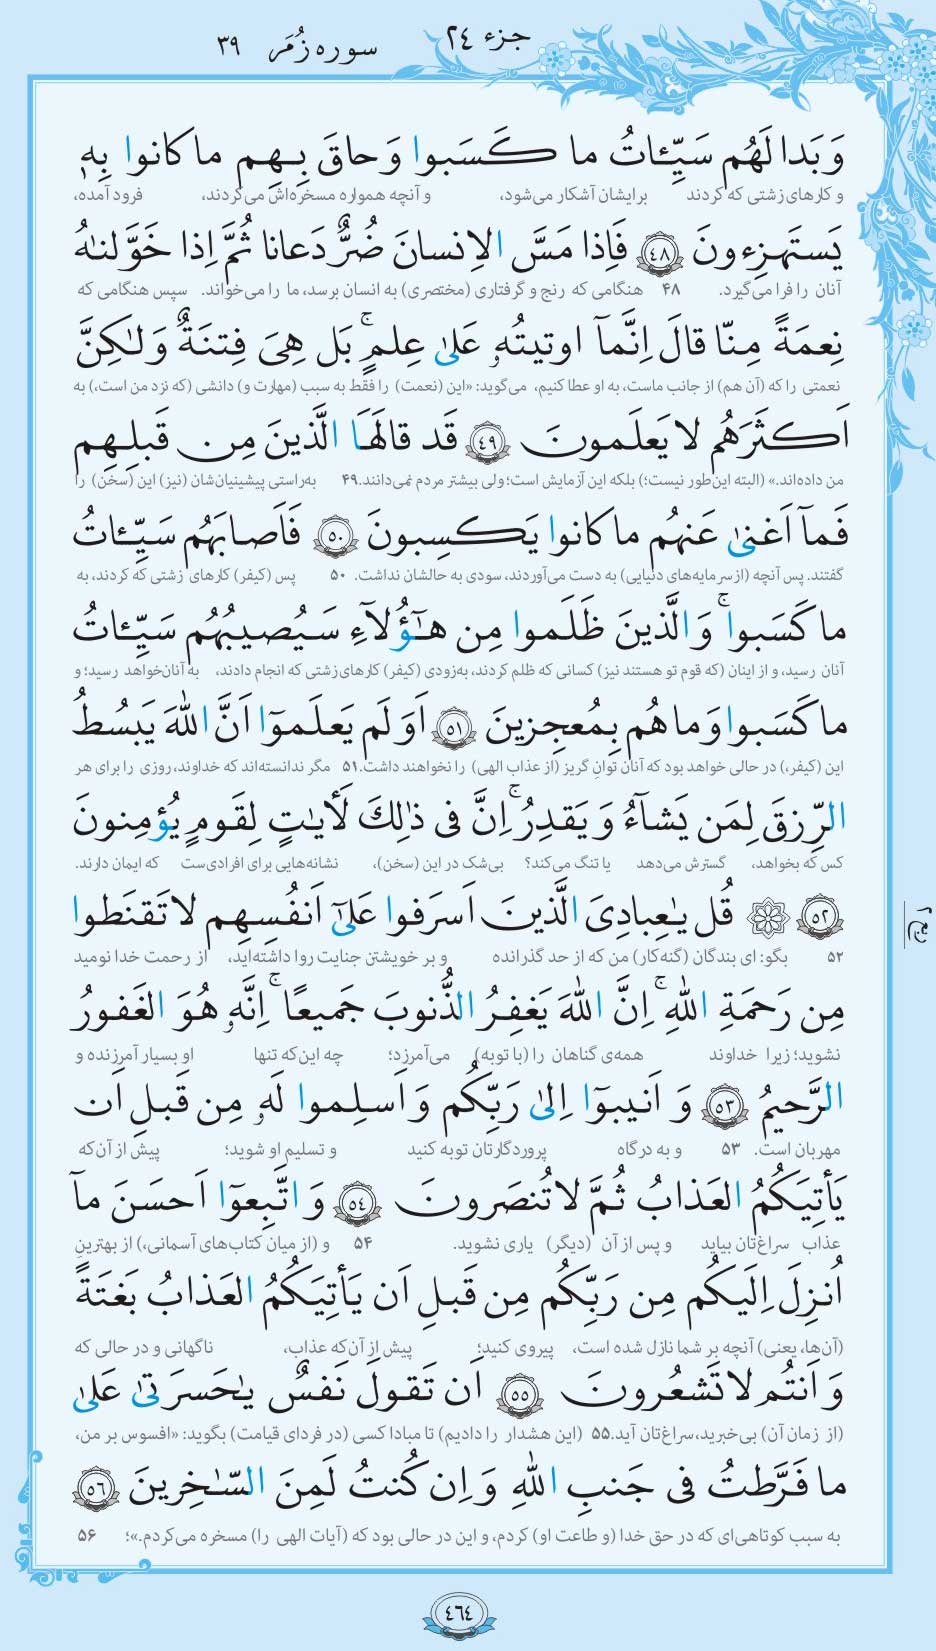 جزء ۲۴
سوره زُمَر ۳۹
وَ بَدا لَهُم سَيِّـٔاتُ ما كَسَبوا وَ حاقَ بِهِم ما كانوا بِهٖ
و کارهای زشتی که کردند برایشان آشکار می‌شود، و آنچه همواره مسخره‌اش می‌کردند، فرود آمده،
يَستَهزِءونَ ﴿۴۸﴾ فَاِذا مَسَّ الاِنسانَ ضُرٌّ دَعانا ثُمَّ اِذا خَوَّلنٰهُ
آنان را فرا می‌گیرد. ۴۸ هنگامی که رنج و گرفتاری (مختصری) به انسان برسد، ما را می‌خواند. سپس هنگامی که
نِعمَةً مِنّا قالَ اِنَّمآ اوتيتُهٗ عَلىٰ عِلمٍ ۚ بَل هِىَ فِتنَةٌ وَ لٰـكِنَّ
نعمتی را که (آن هم) از جانب ماست، به او عطا کنیم، می‌گوید: «این (نعمت) را فقط به سبب (مهارت و) دانشی (که نزد من است،) به
اَكثَرَهُم لا يَعلَمونَ ﴿۴۹﴾ قَد قالَهَا الَّذينَ مِن قَبلِهِم
من داده‌اند.» (البته این‌طور نیست؛) بلکه این آزمایش است؛ ولی بیشتر مردم نمی‌دانند. ۴۹ به‌راستی پیشینیان‌شان (نیز) این (سخن) را
فَمآ اَغنىٰ عَنهُم ما كانوا يَكسِبونَ ﴿۵۰﴾ فَاَصابَهُم سَيِّـٔاتُ
گفتند. پس آنچه (از سرمایه‌های دنیایی) به دست می‌آوردند، سودی به حالشان نداشت. ۵۰ پس (کیفر) کارهای زشتی که کردند، به
ما كَسَبوا ۚ وَ الَّذينَ ظَلَموا مِن هٰٓؤُلآءِ سَيُصيبُهُم سَيِّـٔاتُ
آنان رسید، و از اینان (که قوم تو هستند نیز) کسانی که ظلم کردند، به‌زودی (کیفر) کارهای زشتی که انجام دادند، به آنان خواهد رسید؛ و
ما كَسَبوا وَ ما هُم بِمُعجِزينَ ﴿۵۱﴾ اَوَ لَم يَعلَموٓا اَنَّ اللهَ يَبسُطُ
این (کیفر،) در حالی خواهد بود که آنان توانِ گریز (از عذاب الهی) را نخواهند داشت. ۵۱ مگر ندانسته‌اند که خداوند، روزی را برای هر
الرِّزقَ لِمَن يَشآءُ وَ يَقدِرُ ۚ اِنَّ فى ذٰلِكَ لَأٰيٰتٍ لِقَومٍ يُؤمِنونَ
کس که بخواهد، گسترش می‌دهد یا تنگ می‌کند؟ بی‌شک در این (سخن)، نشانه‌هایی برای افرادی‌ست که ایمان دارند.
﴿۵۲﴾ قُل يٰعِبادِىَ الَّذينَ اَسرَفوا عَلىٰٓ اَنفُسِهِم لا تَقنَطوا
۵۲ بگو: ای بندگان (گنه‌کار) من که از حد گذرانده و بر خویشتن جنایت روا داشته‌اید، از رحمت خدا نومید
ربع ۲
مِن رَحمَةِ اللهِ ۚ اِنَّ اللهَ يَغفِرُ الذُّنوبَ جَميعًا ۚ اِنَّهٗ هُوَ الغَفورُ
نشوید؛ زیرا خداوند همه‌ی گناهان را (با توبه) می‌آمرزد؛ چه این‌که تنها او بسیار آمرزنده و
الرَّحيمُ ﴿۵۳﴾ وَ اَنيبوٓا اِلىٰ رَبِّكُم وَ اَسلِموا لَهٗ مِن قَبلِ اَن
مهربان است. ۵۳ و به درگاه پروردگارتان توبه کنید و تسلیم او شوید؛ پیش از آن‌که
يَأتِيَكُمُ العَذابُ ثُمَّ لا تُنصَرونَ ﴿۵۴﴾ وَ اتَّبِعوٓا اَحسَنَ مآ
عذاب سراغ‌تان بیاید و پس از آن (دیگر) یاری نشوید. ۵۴ و (از میان کتاب‌های آسمانی،) از بهترینِ
اُنزِلَ اِلَيكُم مِن رَبِّكُم مِن قَبلِ اَن يَأتِيَكُمُ العَذابُ بَغتَةً
(آن‌ها، یعنی) آنچه بر شما نازل شده است، پیروی کنید؛ پیش از آن‌که عذاب، ناگهانی و در حالی که
وَ اَنتُم لا تَشعُرونَ ﴿۵۵﴾ اَن تَقولَ نَفسٌ يٰحَسرَتىٰ عَلىٰ
(از زمان آن) بی‌خبرید، سراغ‌تان آید. ۵۵ (این هشدار را دادیم) تا مبادا کسی (در فردای قیامت) بگوید: «افسوس بر من،
ما فَرَّطتُ فى جَنبِ اللهِ وَ اِن كُنتُ لَمِنَ السّٰخِرينَ ﴿۵۶﴾
به سبب کوتاهی‌ای که در حق خدا (و طاعت او) کردم، و این در حالی بود که (آیات الهی را) مسخره می‌کردم.»؛ ۵۶
۴۶۴